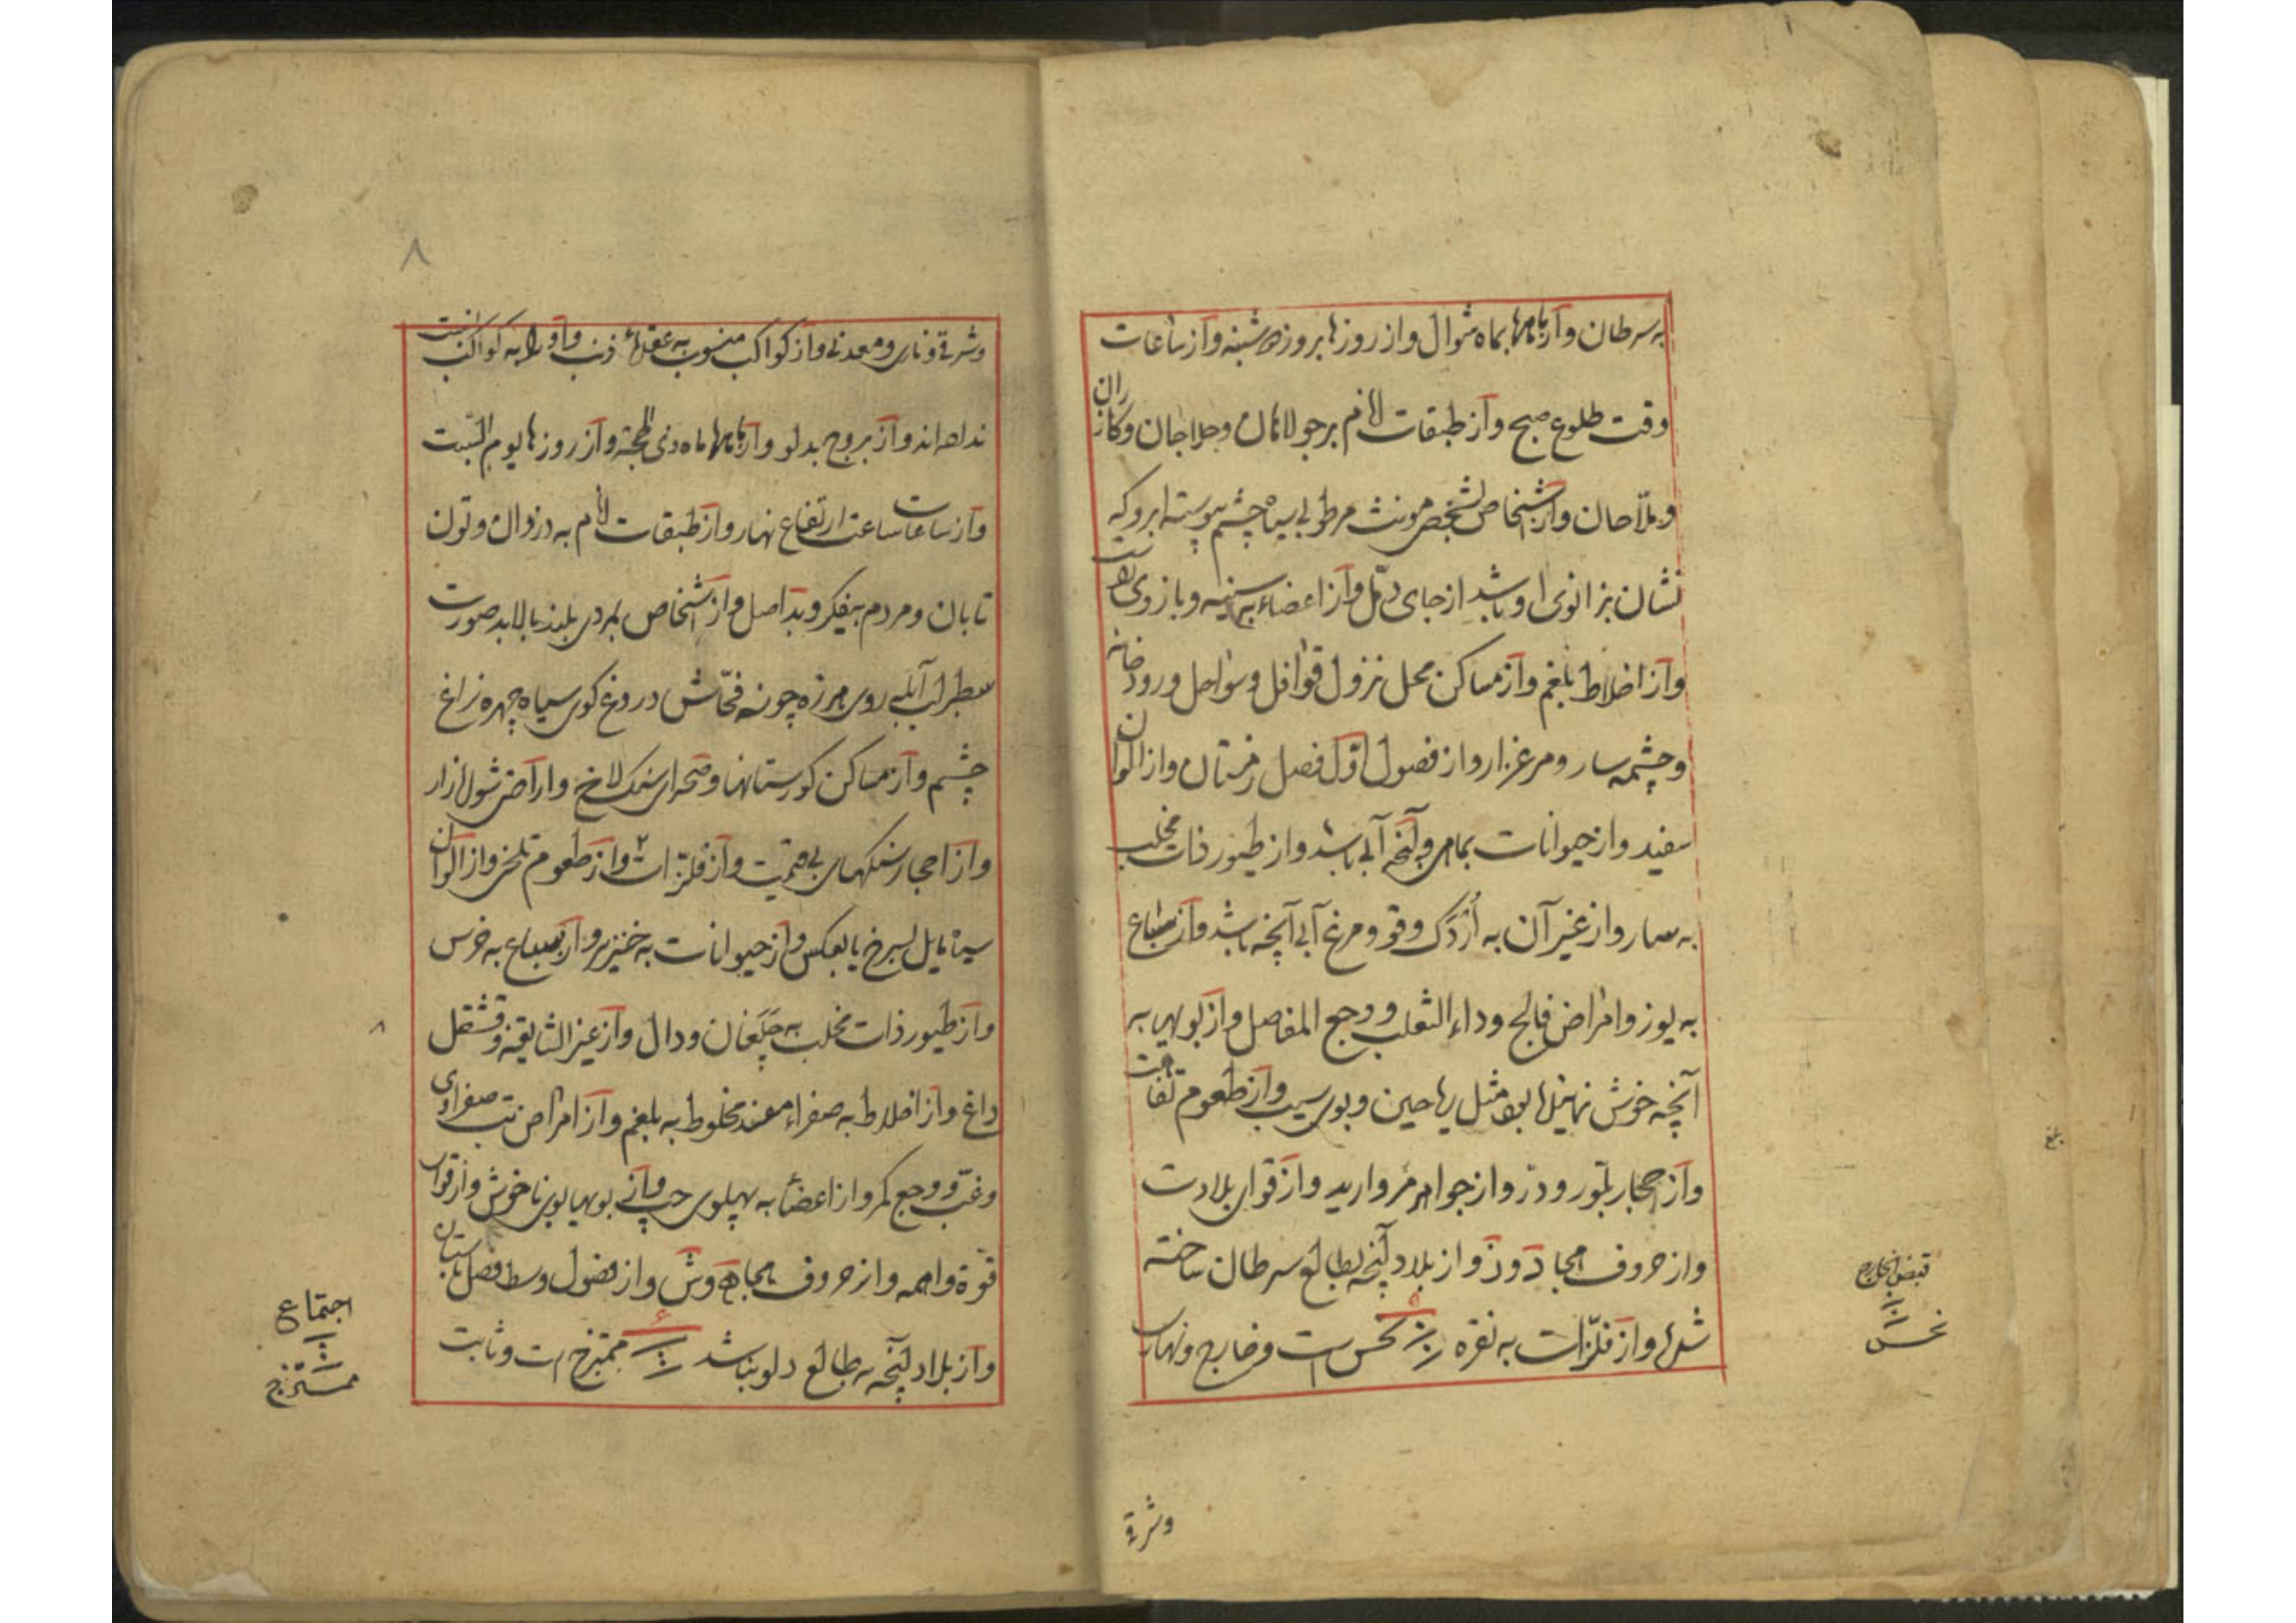 به سرطان و از ماهها بماه شوال و از روزها بروز دوشنبه و از ساعات
وقت طلوع صبح و از طبقات انام بر جولاهان و حلاجان و کازران
و ملاحان و از اشخاص بشخص مونث مرطوبی سیاه چشم پیوسته ابرو که
نشان بزانوی او باشد از جای دمل و از اعضاء به سینه و بازوی راست
و از اخلاط بلغم و از مساکن محل نزول قوافل و سواحل و رودخانه
و چشمه سار و مرغزار و از فصول اول فصل زمستان و از الوان
سفید و از حیوانات بماهی و آنچه آبی باشد و از طیور ذات مخلب
به سار و از غیر آن به اُرْدَک و قو و مرغ آبی آنچه باشد و از سباع
به یوز و امراض فالج و داء الثعلب و وجع المفاصل و از بویها به
آنچه خوش مثل ریاحین و بوی سیب و از طعوم تفاهت
و از احجار بلّور و درّ و از جواهر مروارید و از قوای بلادت
و از حروف ابجد دَ وَ زَ و از بلاد آنچه بطالع سرطان ساخته
شده و از فلزّات به نقره نحس است و خارج و نهاری
قبض الخارج
نحس
وشرقی
۸
و شرقی و ناری و معدنی و از کواکب منسوب به عقدهٔ ذنب و او را به کواکب نسبت
نداده‌اند و از بروج بدلو و از ماهها ماه ذی الحجة و از روزها یوم السّبت
و از ساعات ساعت ارتفاع نهار و از طبقات انام به دزدان و تون
تابان و مردم بیفکر و بد اصل و از اشخاص بمردی بلند بالا بد صورت
سطبر لب آبله روی هرزه چونه فحّاش دروغ کوی سیاه چهره زاغ
چشم و از مساکن کورستانها و صحرای سنک لاخ و اراضی شوله‌زار
و از احجار سنکهای بی قیمت و از فلزّات و از طعوم تلخی و از الوان
سیاه مایل بسرخ یا بعکس و از حیوانات به خنزیر و از سباع به خرس
و از طیور ذات مخلب به چَلَغان و دال و از غیر الشایقه و قشقل
داغ و از اخلاط به صفراء معفنه مخلوط به بلغم و از امراض تب صفراوی
و غبّ و وجع کمر و از اعضاء به پهلوی چپ و از بویها بوی ناخوش و از قوای
قوّة واهمه و از حروف ابجد هَ وَ شَ و از فصول وسط فصل تابستان
و از بلاد آنچه به طالع دلو بنا شد ۶ ممتزج است و ثابت
۸
اجتماع
ممتزج